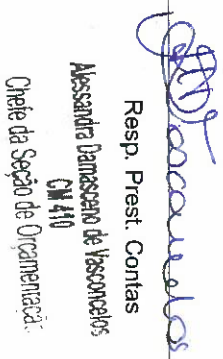 Vasconcelos
Resp. Prest. Contas
Alessandra Damasceno de Vasconcelos
CM 410
Chefe da Seção de Orçamentação